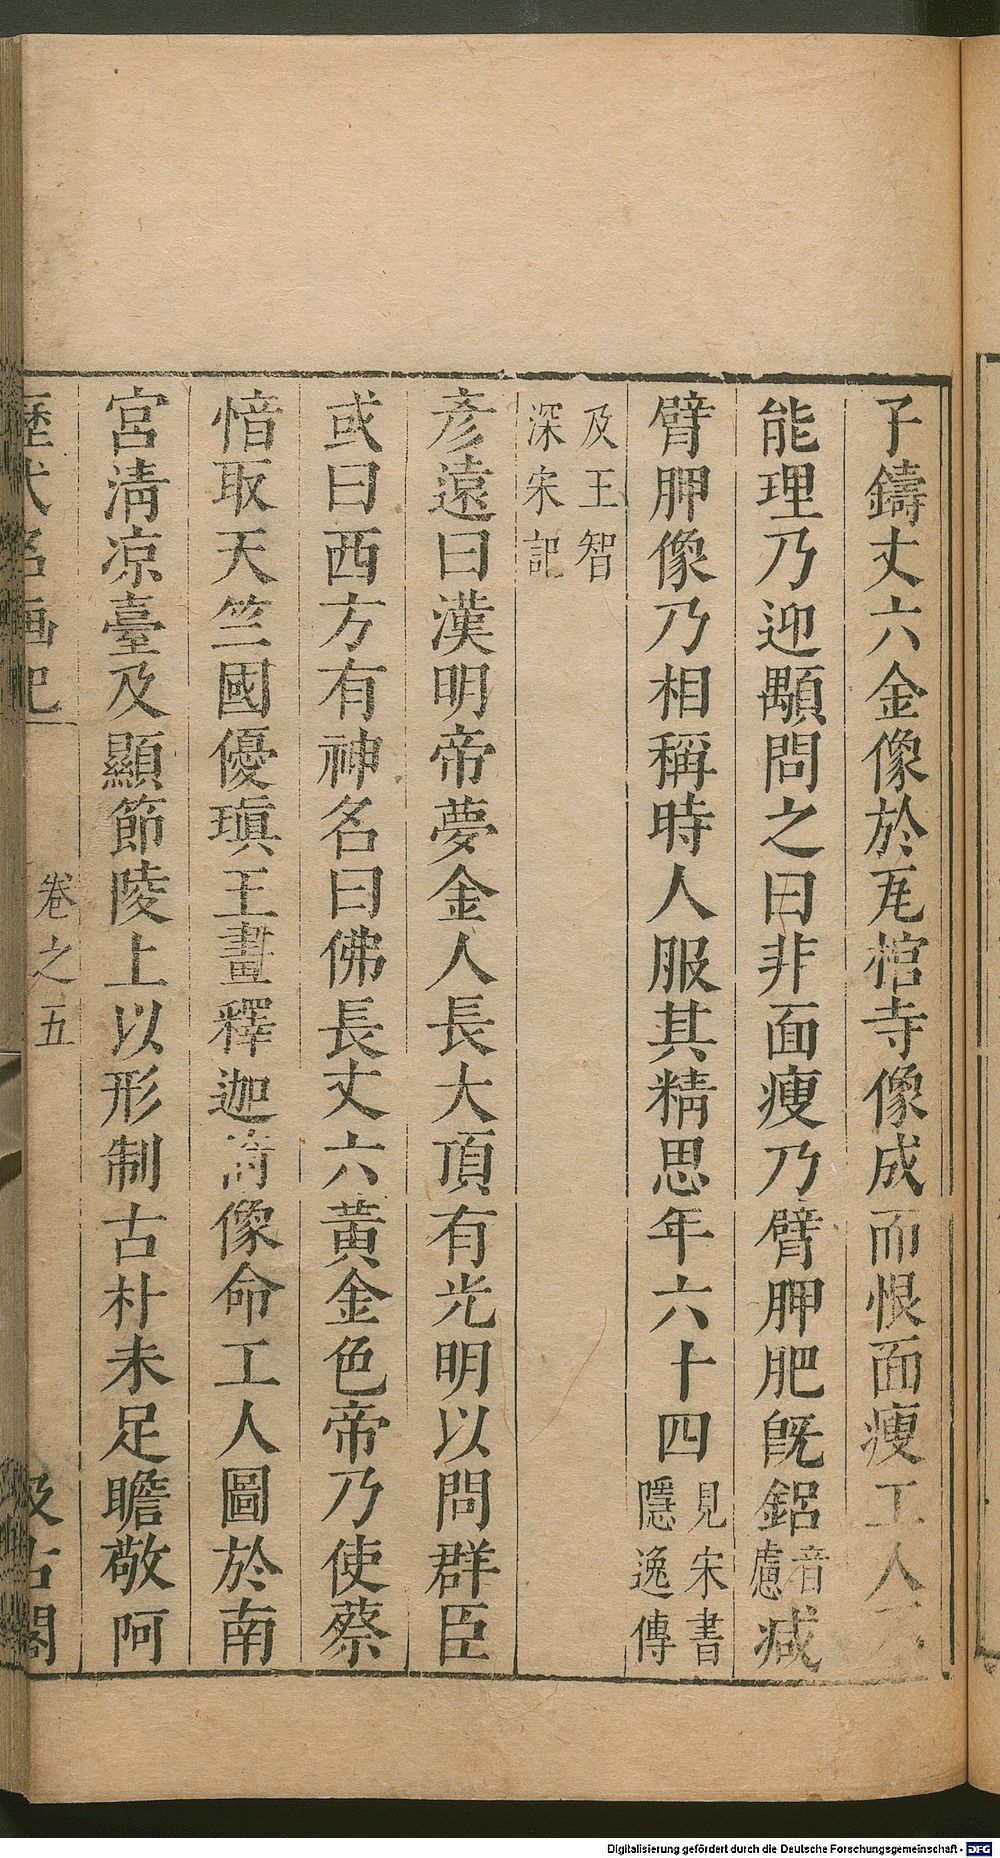 子鑄丈六金像於瓦棺寺像成而恨面瘦工人不
能理乃迎顒問之曰非面瘦乃臂胛肥旣鋁音慮减
臂胛像乃相稱時人服其精思年六十四見宋書隱逸傳
及王智深宋記
彥遠曰漢明帝夢金人長大頂有光明以問群臣
或曰西方有神名曰佛長丈六黃金色帝乃使蔡
愔取天竺國優瑱王畫釋迦倚像命工人圖於南
宮淸凉臺及顯節陵上以形制古朴未足瞻敬阿
歷代名画記 卷之五 汲古閣
Digitalisierung gefördert durch die Deutsche Forschungsgemeinschaft - DFG